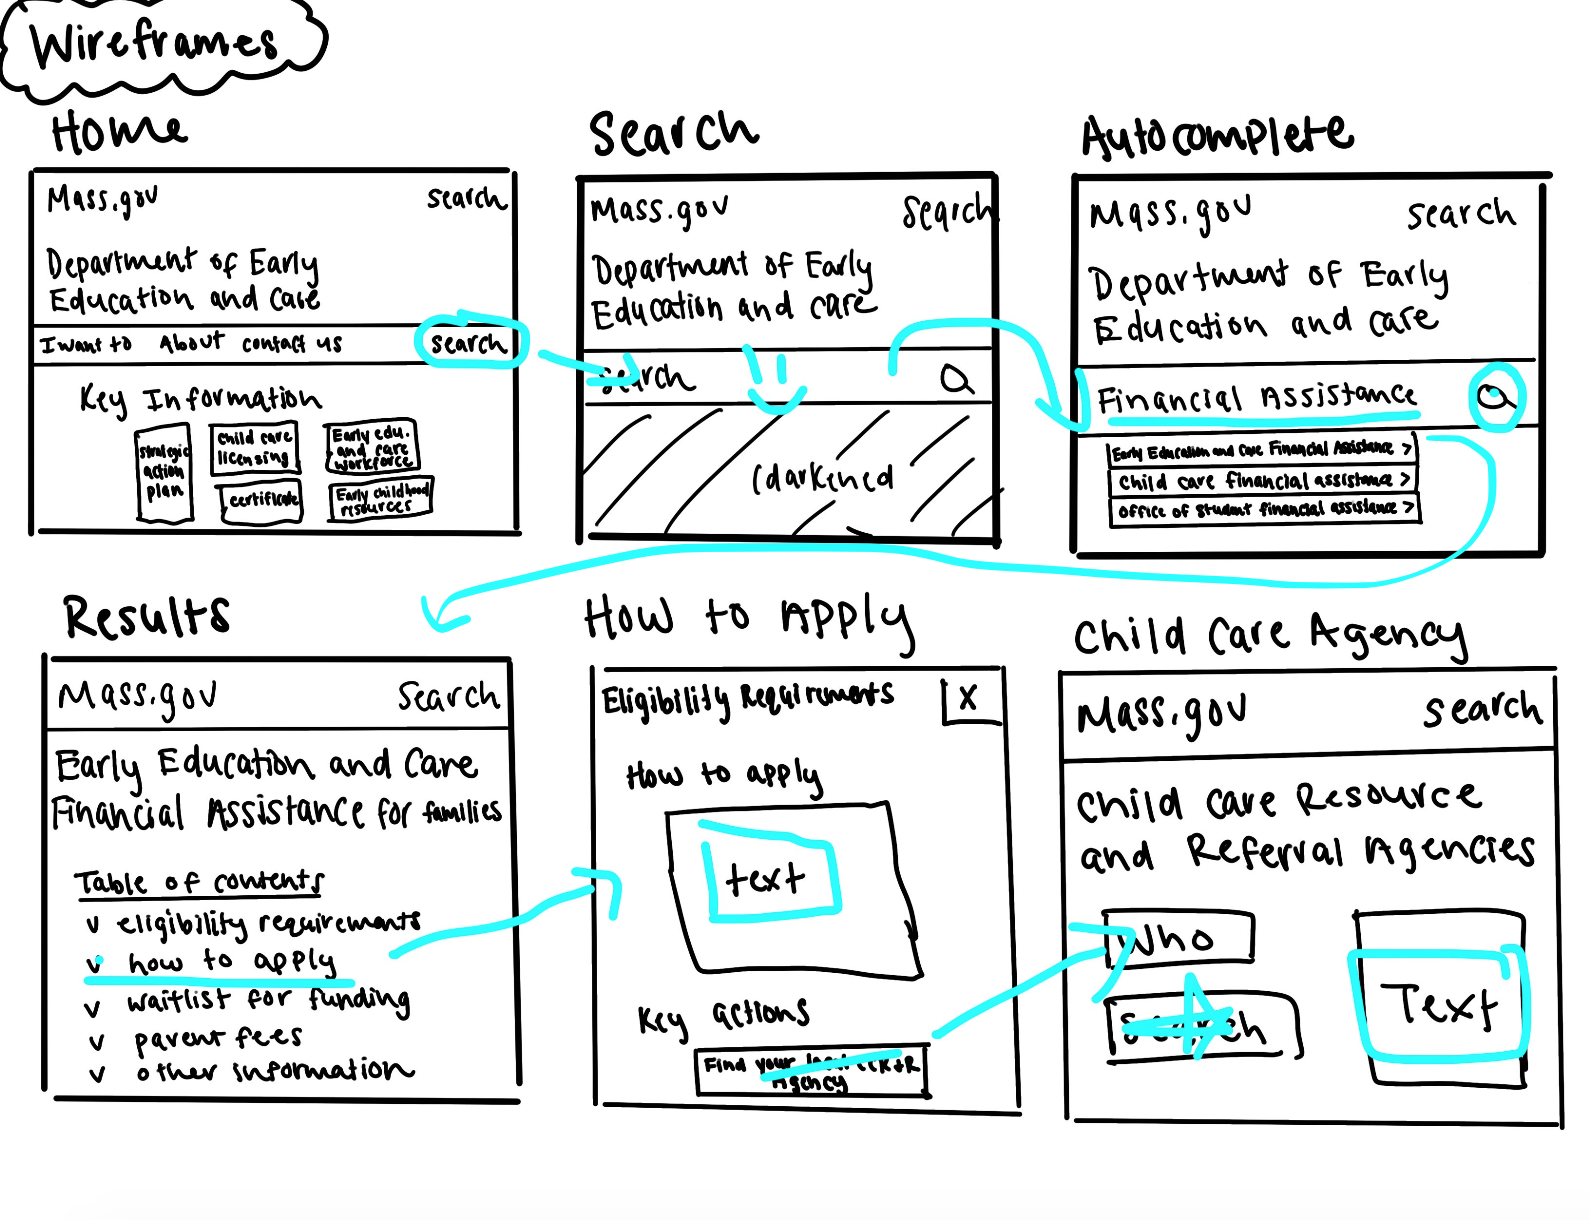 Wireframes
Home
Mass.gov search
Department of Early
Education and Care
I want to About contact us search
Key Information
strategic
action
plan
child care
licensing
Early edu.
and care
workforce
certificate
Early childhood
resources
Search
Mass.gov Search
Department of Early
Education and care
search
(darkened
Autocomplete
Mass.gov search
Department of Early
Education and care
Financial Assistance
Early Education and Care Financial Assistance >
child care financial assistance >
office of student financial assistance >
Results
Mass.gov Search
Early Education and Care
Financial Assistance for families
Table of contents
v eligibility requirements
v how to apply
v waitlist for funding
v parent fees
v other information
How to Apply
Eligibility Requirements X
How to apply
text
Key actions
Find your local CCR&R
Agency
Child Care Agency
Mass.gov search
Child Care Resource
and Referral Agencies
Who
Search
Text